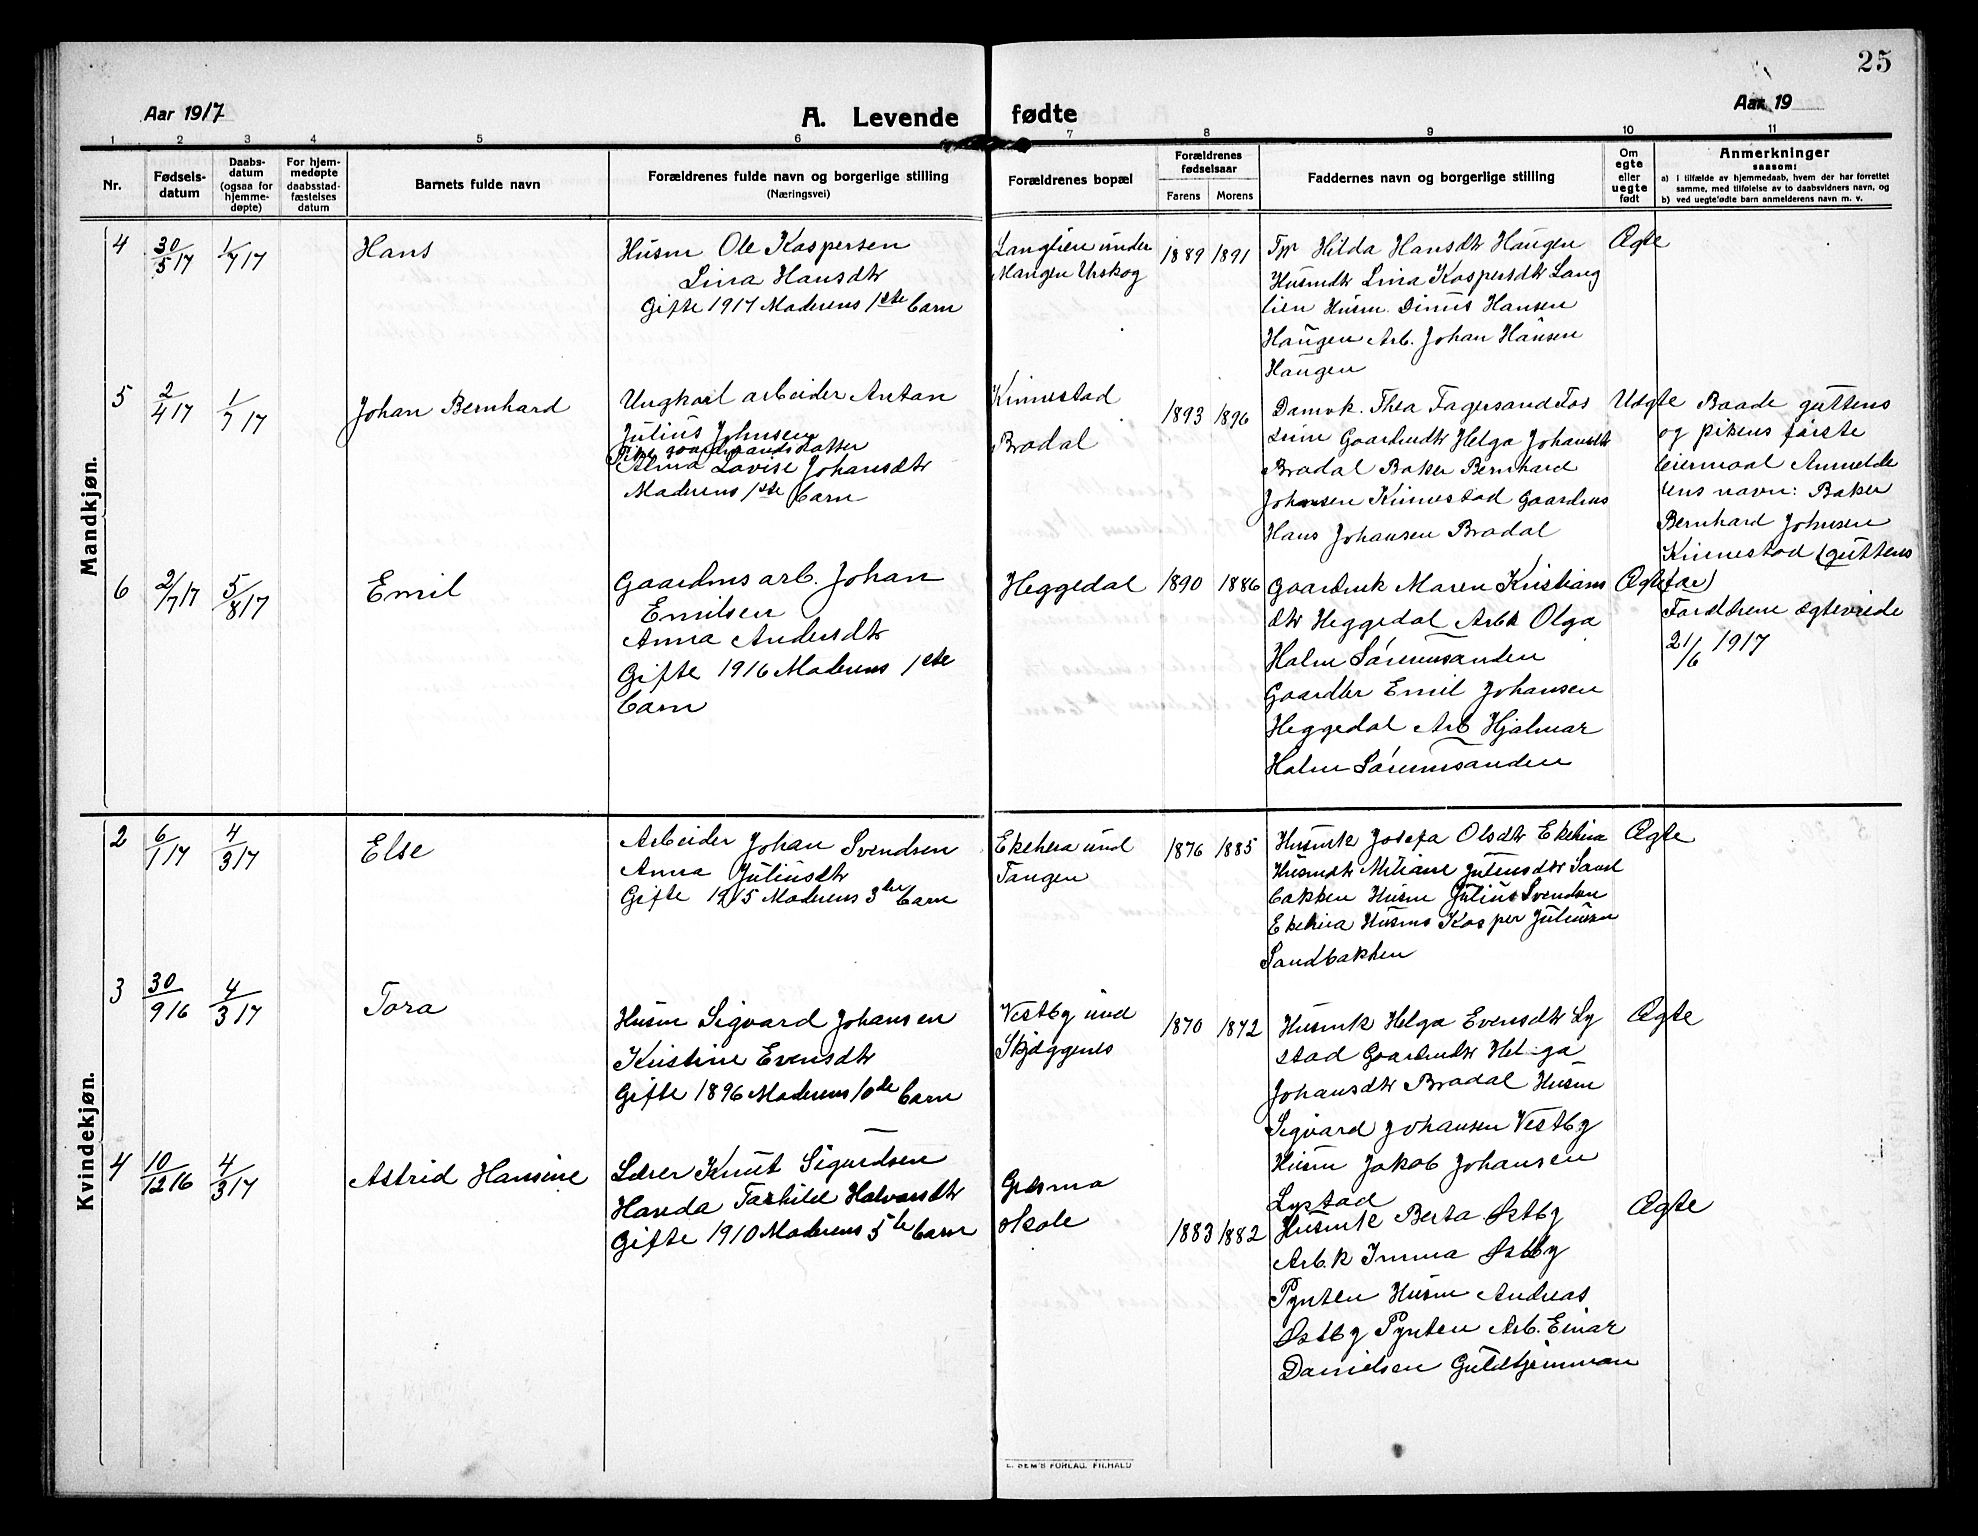 25
Aar 1917
A. Levende fødte
Aar 19
1 2 3 4 5 6 7 8 9 10 11
Nr.
Fødsels-
datum
Daabs-
datum
(ogsaa for
hjemme-
døpte)
For hjem-
medøpte
daabsstad-
fæstelses
datum
Barnets fulde navn
Forældrenes fulde navn og borgerlige stilling
(Næringsvei)
Forældrenes bopæl
Forældrenes
fødselsaar
Farens Morens
Faddernes navn og borgerlige stilling
Om
egte
eller
uegte
født
Anmerkninger
saasom:
a) i tilfælde av hjemmedaab, hvem der har forrettet
samme, med tilføielse av to daabsvidners navn, og
b) ved uegtefødte barn anmelderens navn m. v.
Mandkjøn.
4
30/5 17
1/7 17
Hans
Husm Ole Kaspersen
Lina Hansdtr
Gifte 1917 Moderens 1ste barn
Langlien under
Mangen Urskog
1889 1891
Hilda Hansdtr Haugen
Husmdtr Lina Kaspersdtr Lang
lien Husm. Dinus Hansen
Haugen Arb. Johan Hansen
Haugen
Ægte
5
2/4 17
1/7 17
Johan Bernhard
Ungkarl arbeider Anton
Julius Johnsen
Pike gaardmandsdatter
Alma Lovise Johansdtr
Moderens 1ste barn
Kinnestad
Bradal
1893 1896
Thea Fagersand Fos
Gaardmdtr Helga Johansdtr
Bradal Baker Bernhard
Johansen Kinnestad Gaardms
Hans Johansen Bradal
Uægte
Baade guttens
og pikens første
leiermaal Anmelde
rens navn: Baker
Bernhard Johnsen
Kinnestad (guttens
far)
Foreldrene egteviede
21/6 1917
6
2/7 17
5/8 17
Emil
Gaardms arb. Johan
Emilsen
Anna Andersdtr
Gifte 1916 Moderens 1ste
barn
Heggedal
1890 1886
Gaardmk Maren Kristians
dtr Heggedal Arbk Olga
Holm Sørumsanden
Gaardbr Emil Johansen
Heggedal Arb Hjalmar
Holm Sørumsanden
Ægte
Kvindekjøn.
2
6/1 17
4/3 17
Else
Arbeider Johan Svendsen
Anna Juliusdtr
Gifte 1915 Moderens 3die barn
Ekeheia und
Tangen
1876 1885
Husmk Josefa Olsdtr Ekeheia
Husmdtr Miliane Juliusdtr Sand
bakken Husm Julius Svendsen
Ekeheia Husms Kasper Juliussen
Sandbakken
Ægte
3
30/9 16
4/3 17
Tora
Husm Sigvard Johansen
Kristine Evensdtr
Gifte 1896 Moderens 10de barn
Vestby und
Skjæggenes
1870 1872
Husmk Helga Evensdtr Ly
stad Gaardmdtr Helga
Johansdtr Bradal Husm
Sigvard Johansen Vestby
Husm Jakob Johansen
Lystad
Ægte
4
10/12 16
4/3 17
Astrid Hansine
Lærer Knut Sigurdsen
Handa Torhild Halvorsdtr
Gifte 1910 Moderens 5te barn
Græsmo
skole
1883 1882
Husmk Berta Østby
Arb.k Imma Østby
Pynten Husm Andreas
Østby Pynten Arb. Einar
Danielsen Guldtjernmoen
Ægte
E. SEM'S FORLAG, FR.HALD